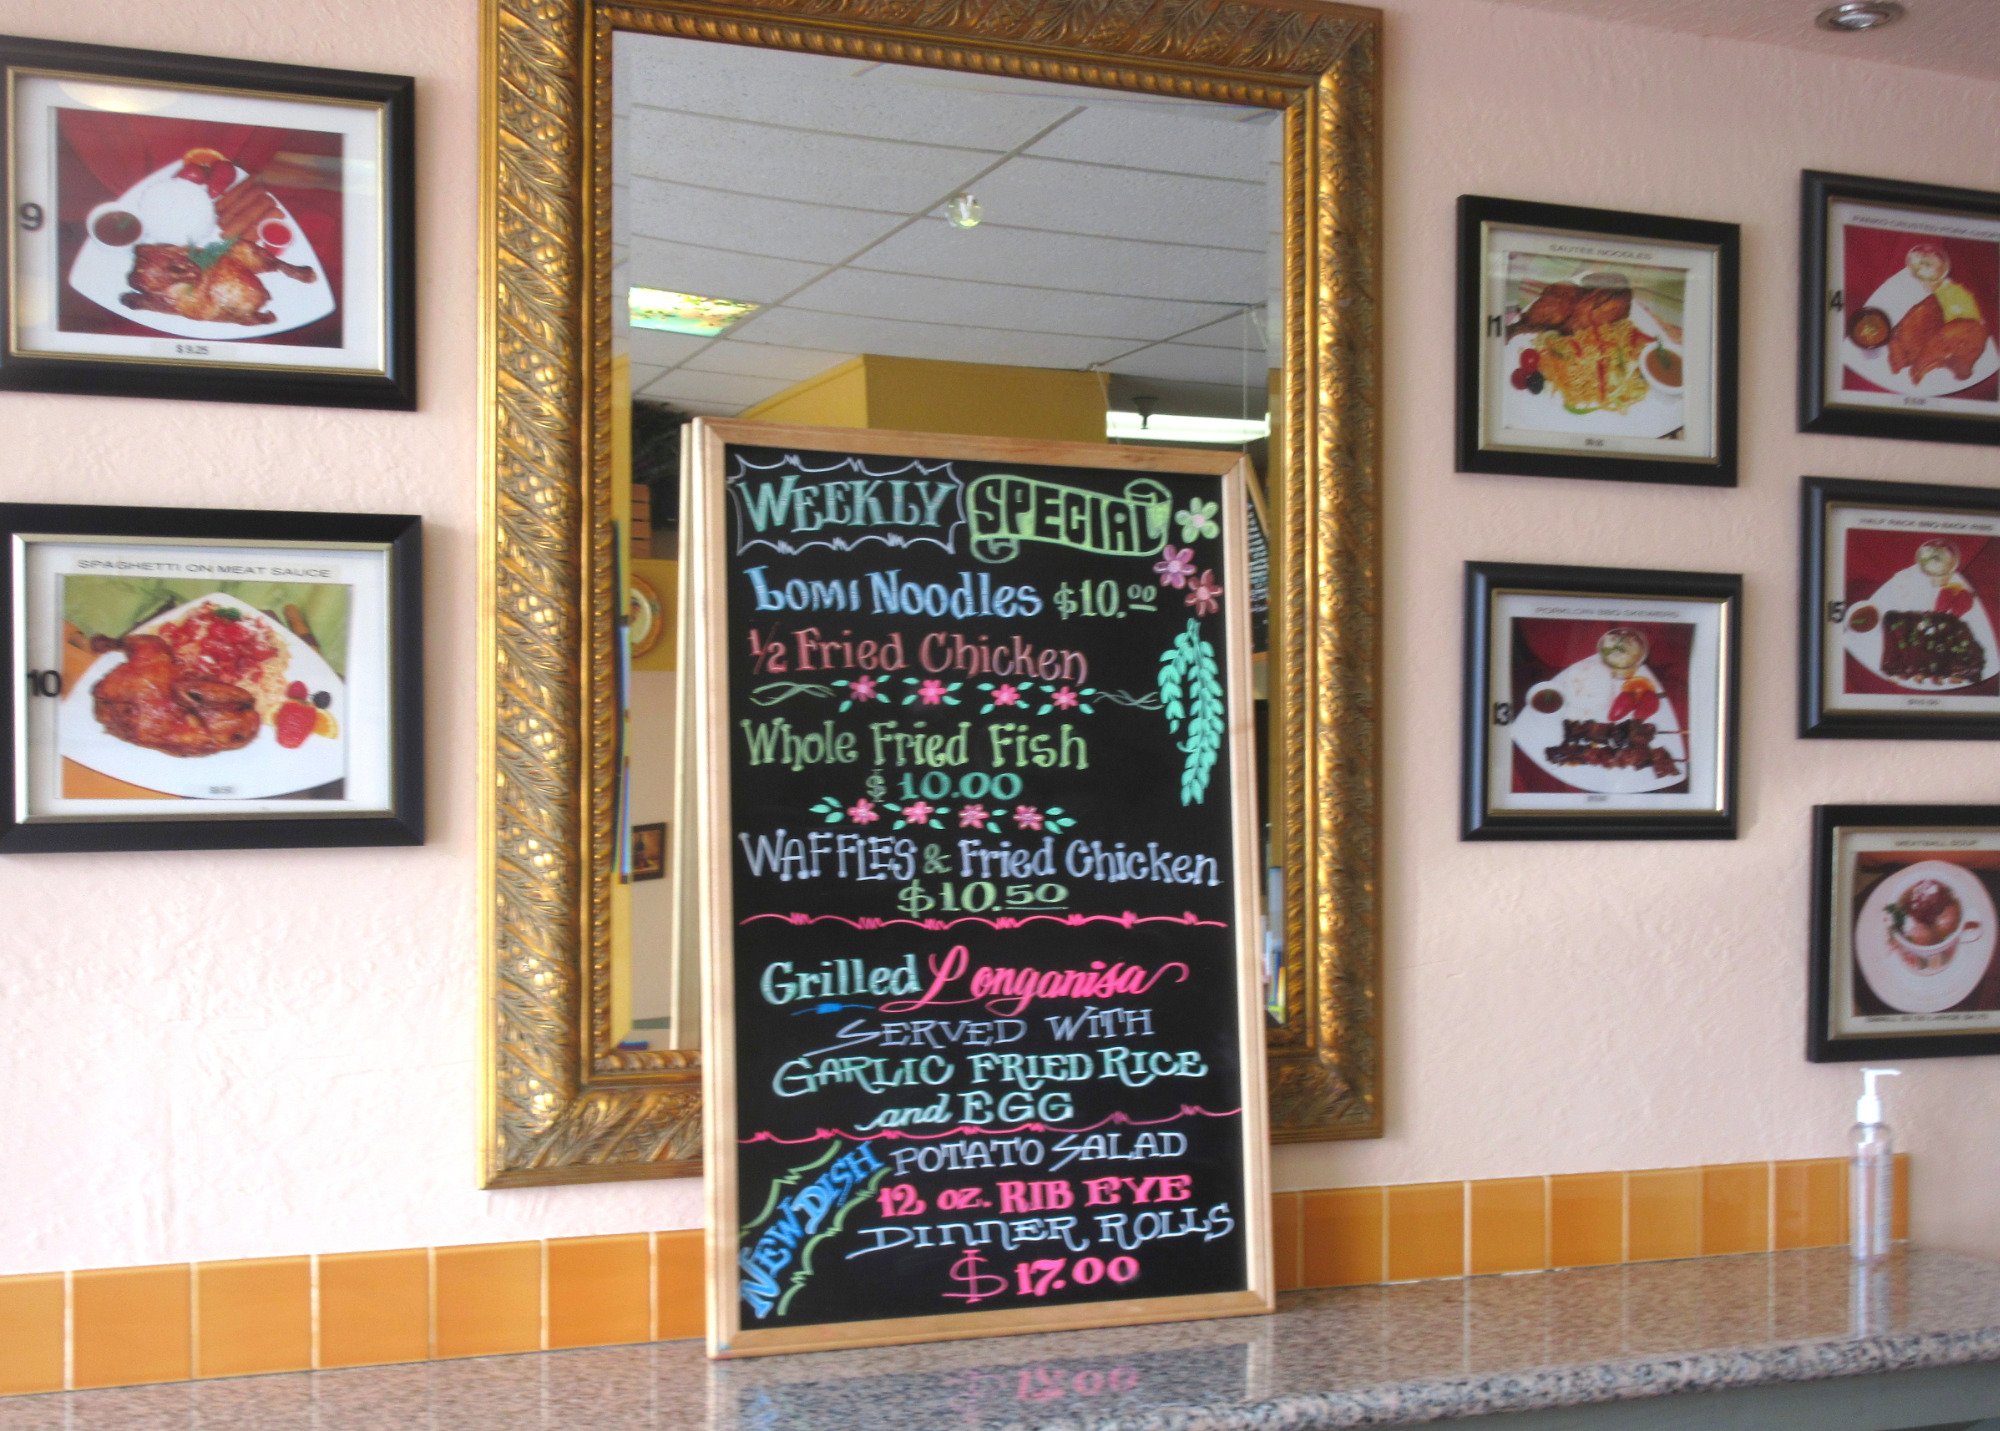 WEEKLY SPECIAL
LOMI NOODLES $10.00
1/2 Fried Chicken
Whole Fried Fish
$ 10.00
WAFFLES & Fried Chicken
$10.50
Grilled Longanisa
SERVED WITH
GARLIC FRIED RICE
and EGG
NEW DISH
POTATO SALAD
12 oz. RIB EYE
DINNER ROLLS
$ 17.00
9
$ 9.25
SPAGHETTI ON MEAT SAUCE
10
SAUTEE NOODLES
11
PORKLOIN BBQ SKEWERS
13
4
HALF RACK BBQ BACK RIBS
15
MEATBALL SOUP